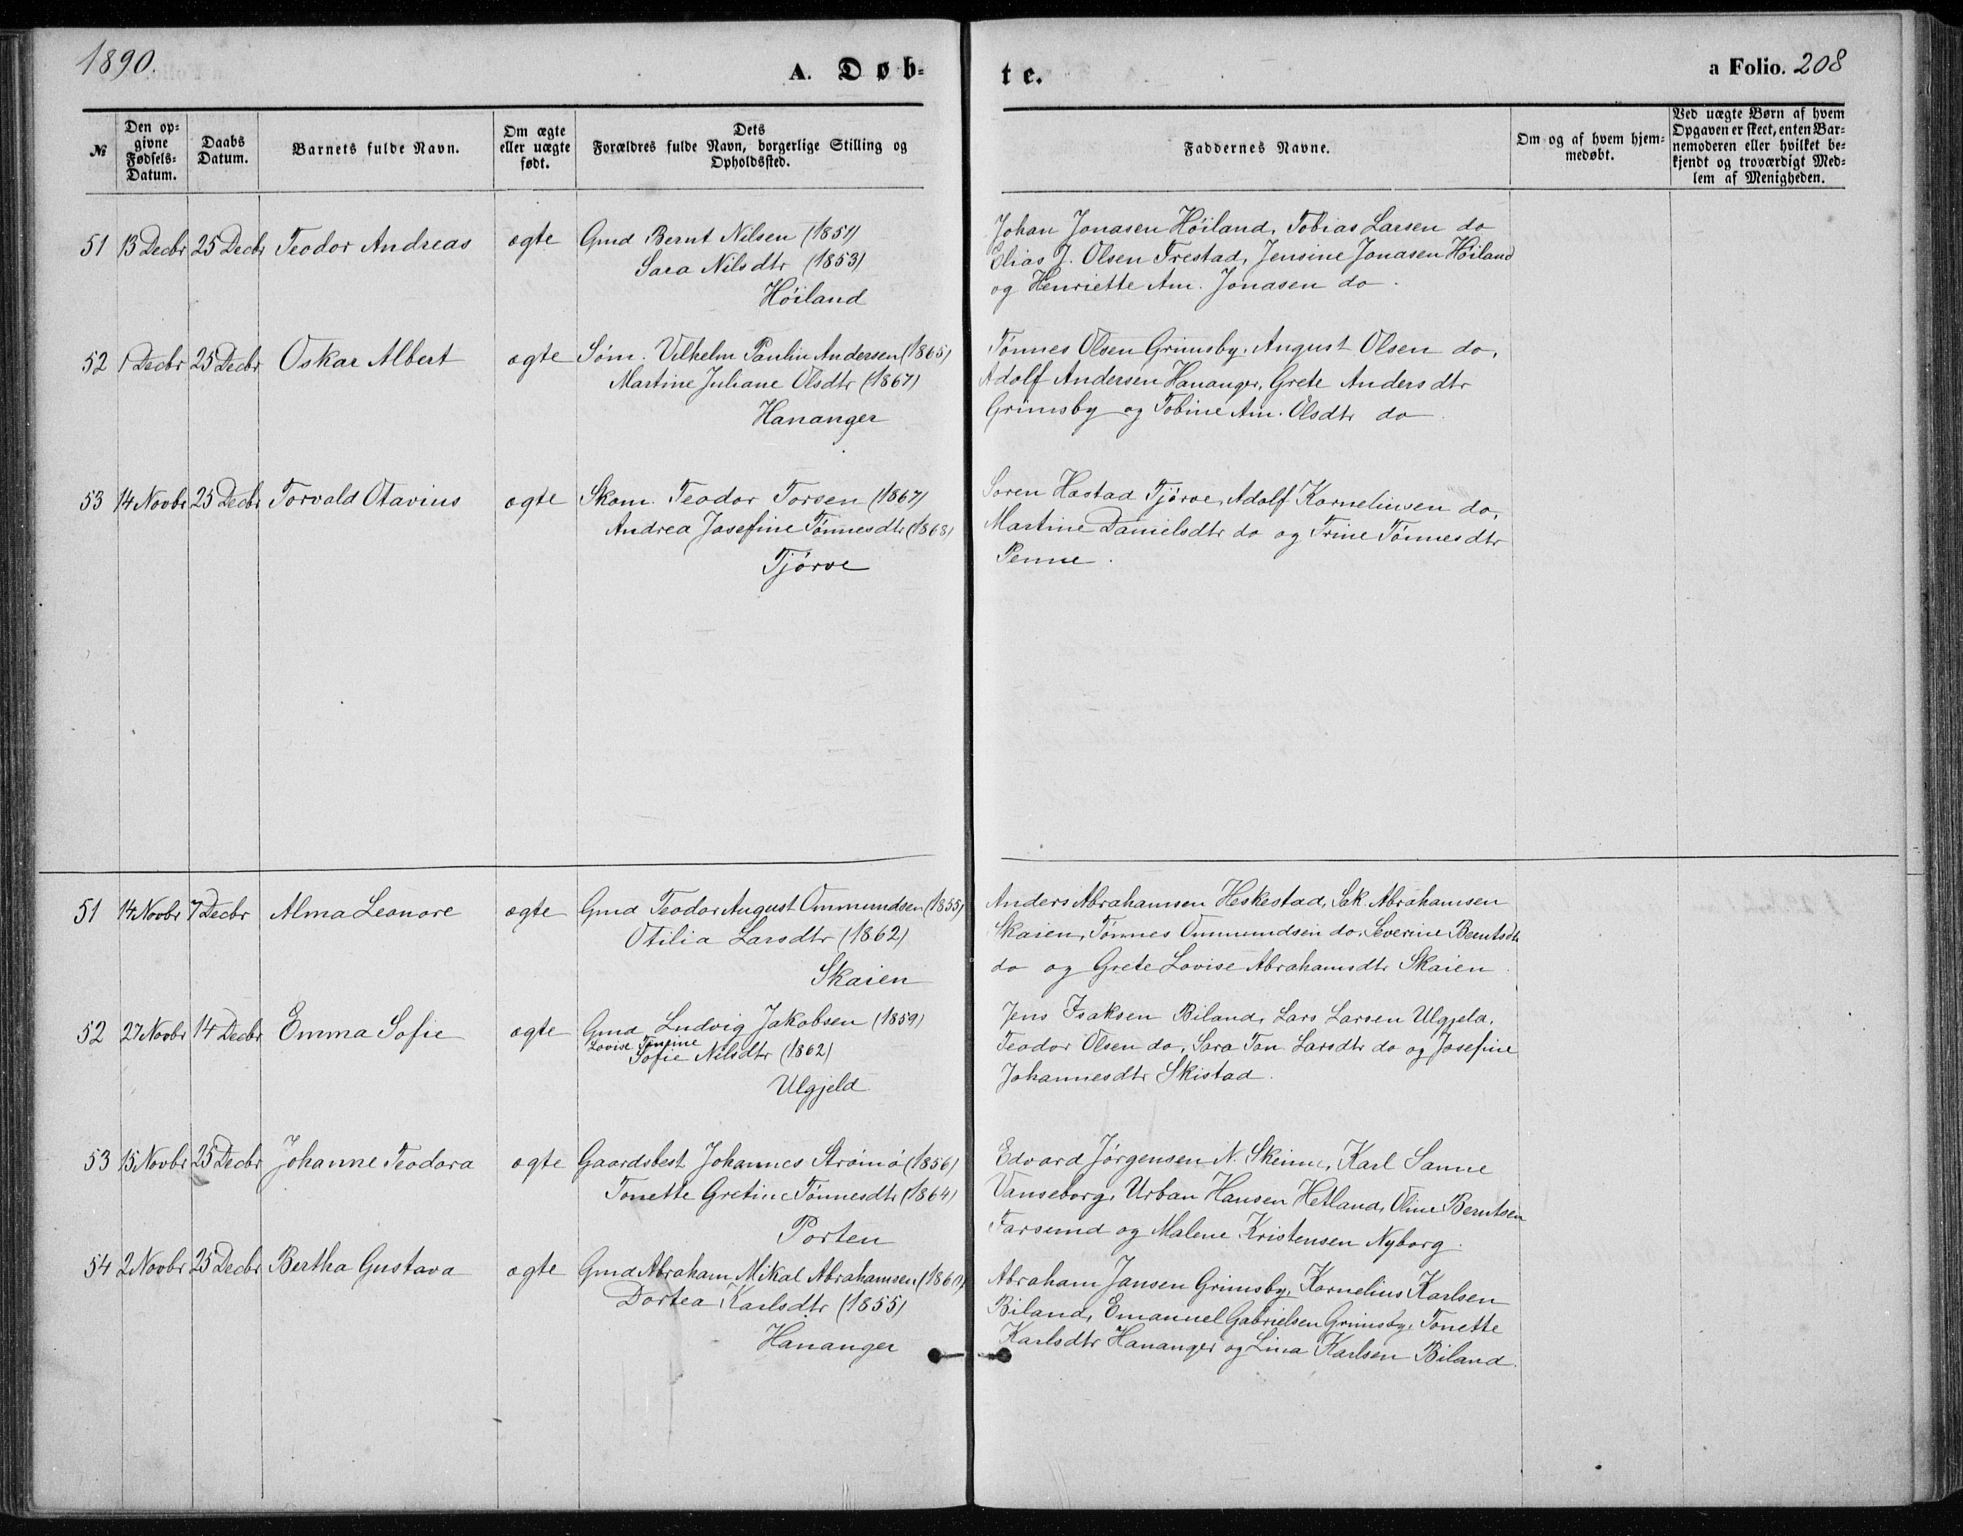 1890.
A. Døb-
te.
a Folio. 208
№
Den op-
givne
Fødsels-
Datum.
Daabs
Datum.
Barnets fulde Navn.
Om ægte
eller uægte
født.
Dets
Forældres fulde Navn, borgerlige Stilling og
Opholdssted.
Faddernes Navne.
Om og af hvem hjem-
medøbt.
Ved uægte Børn af hvem
Opgaven er skeet, enten Bar-
nemoderen eller hvilket be-
kjendt og troværdigt Med-
lem af Menigheden.
51 13 Decbr 25 Decbr Teodor Andreas ægte Gmd Bernt Nilsen (1851)
Sara Nilsdtr (1853)
Høiland
Johan Jonasen Høiland, Tobias Larsen do
Elias J. Olsen Frestad, Jensine Jonasen Høiland
og Henriette Am. Jonasen do.
52 1 Decbr 25 Decbr Oskar Albert ægte Søm. Vilhelm Paulin Andersen (1865)
Martine Juliane Olsdtr (1867)
Hananger
Tønnes Olsen Grimsby, August Olsen do,
Adolf Andersen Hananger, Grete Andersdtr
Grimsby og Tobine Am. Olsdtr do.
53 14 Novbr 25 Decbr Torvald Otavius ægte Skom. Teodor Torsen (1867)
Andrea Josefine Tønnesdtr (1868)
Tjørve
Søren Hastad Tjørve, Adolf Korneliusen do,
Martine Danielsdtr do og Trine Tønnesdtr
Penne.
51 14 Novbr 7 Decbr Alma Leonore ægte Gmd Teodor August Ommundsen (1855)
Otilia Larsdtr (1862)
Skaien
Anders Abrahamsen Heskestad, Sak. Abrahamsen
Skaien, Tønnes Ommundsen do, Severine Berntsdtr
do og Grete Lovise Abrahamsdtr Skaien.
52 27 Novbr 14 Decbr Emma Sofie ægte Gmd Ludvig Jakobsen (1859)
Lovise
Sofie Nilsdtr (1862)
Ulgjeld
Jens Isaksen Biland, Lars Larsen Ulgjeld,
Teodor Olsen do, Sara Tan Larsdtr do og Josefine
Johannesdtr Skistad.
53 15 Novbr 25 Decbr Johanne Teodora ægte Gaardsbest Johannes Strømø (1856)
Tonette Gretine Tønnesdtr (1864)
Porten
Edvard Jørgensen N. Skeime, Karl Sanne
Vanseborg, Urban Hansen Hetland, Oline Berntsen
Farsund og Malene Kristensen Nyborg.
54 2 Novbr 25 Decbr Bertha Gustava ægte Gmd Abraham Mikal Abrahamsen (1860)
Dortea Karlsdtr (1855)
Hananger
Abraham Jansen Grimsby, Kornelius Karlsen
Biland, Emanuel Gabrielsen Grimsby, Tonette
Karlsdtr Hananger og Lina Karlsen Biland.